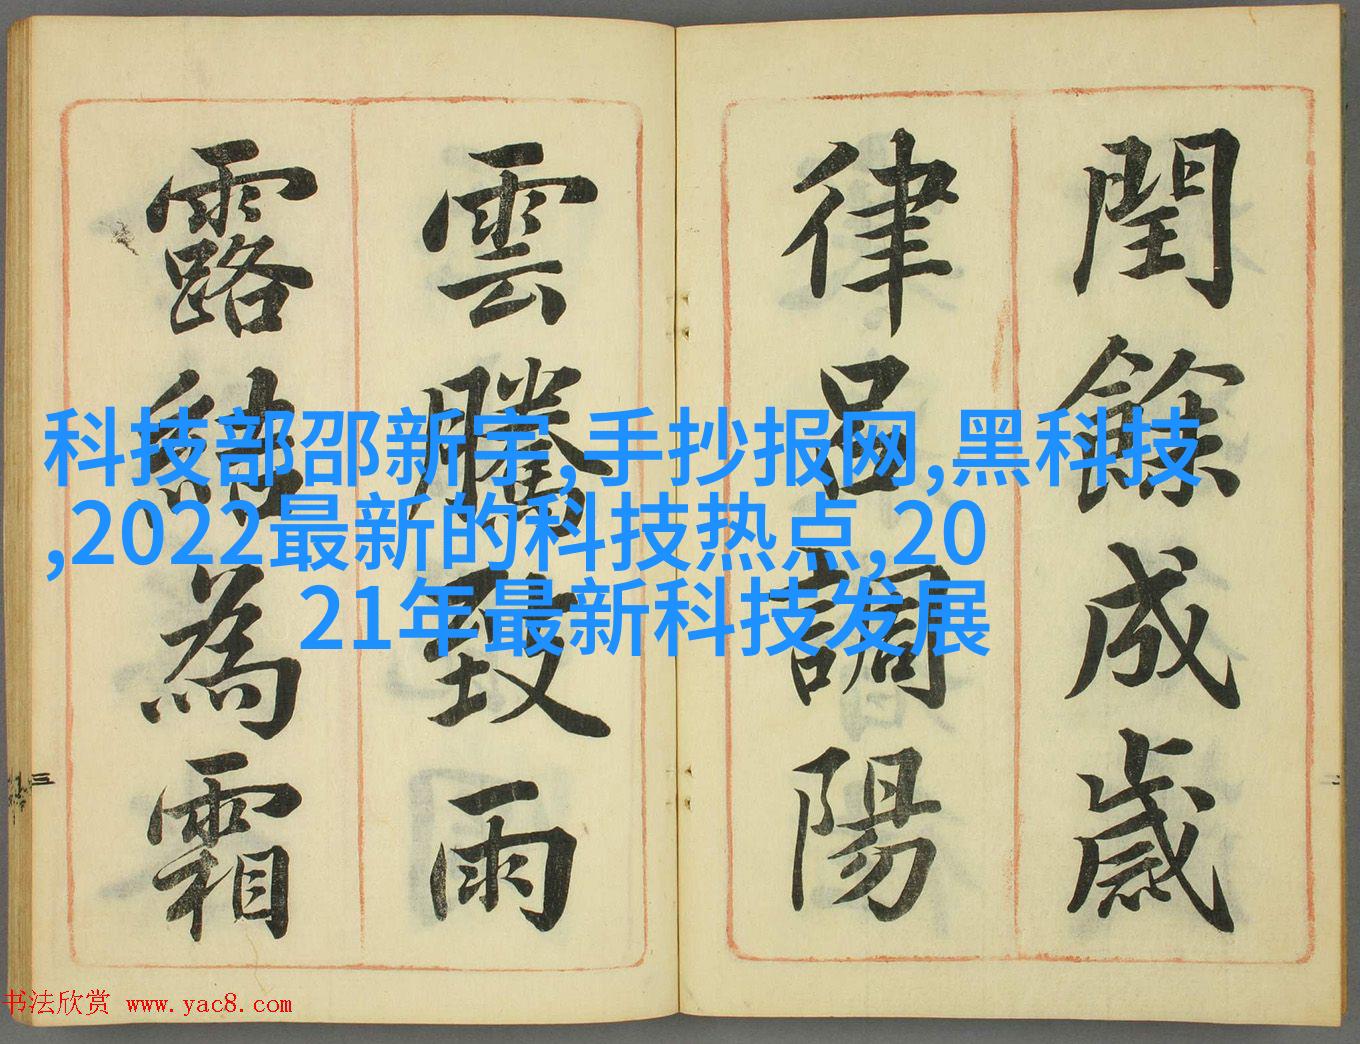 閏餘成歲
律呂調陽
雲騰致雨
露結為霜
科技部邵新宇,手抄报网,黑科技
,2022最新的科技热点,20
21年最新科技发展
三
书法欣赏 www.yac8.com